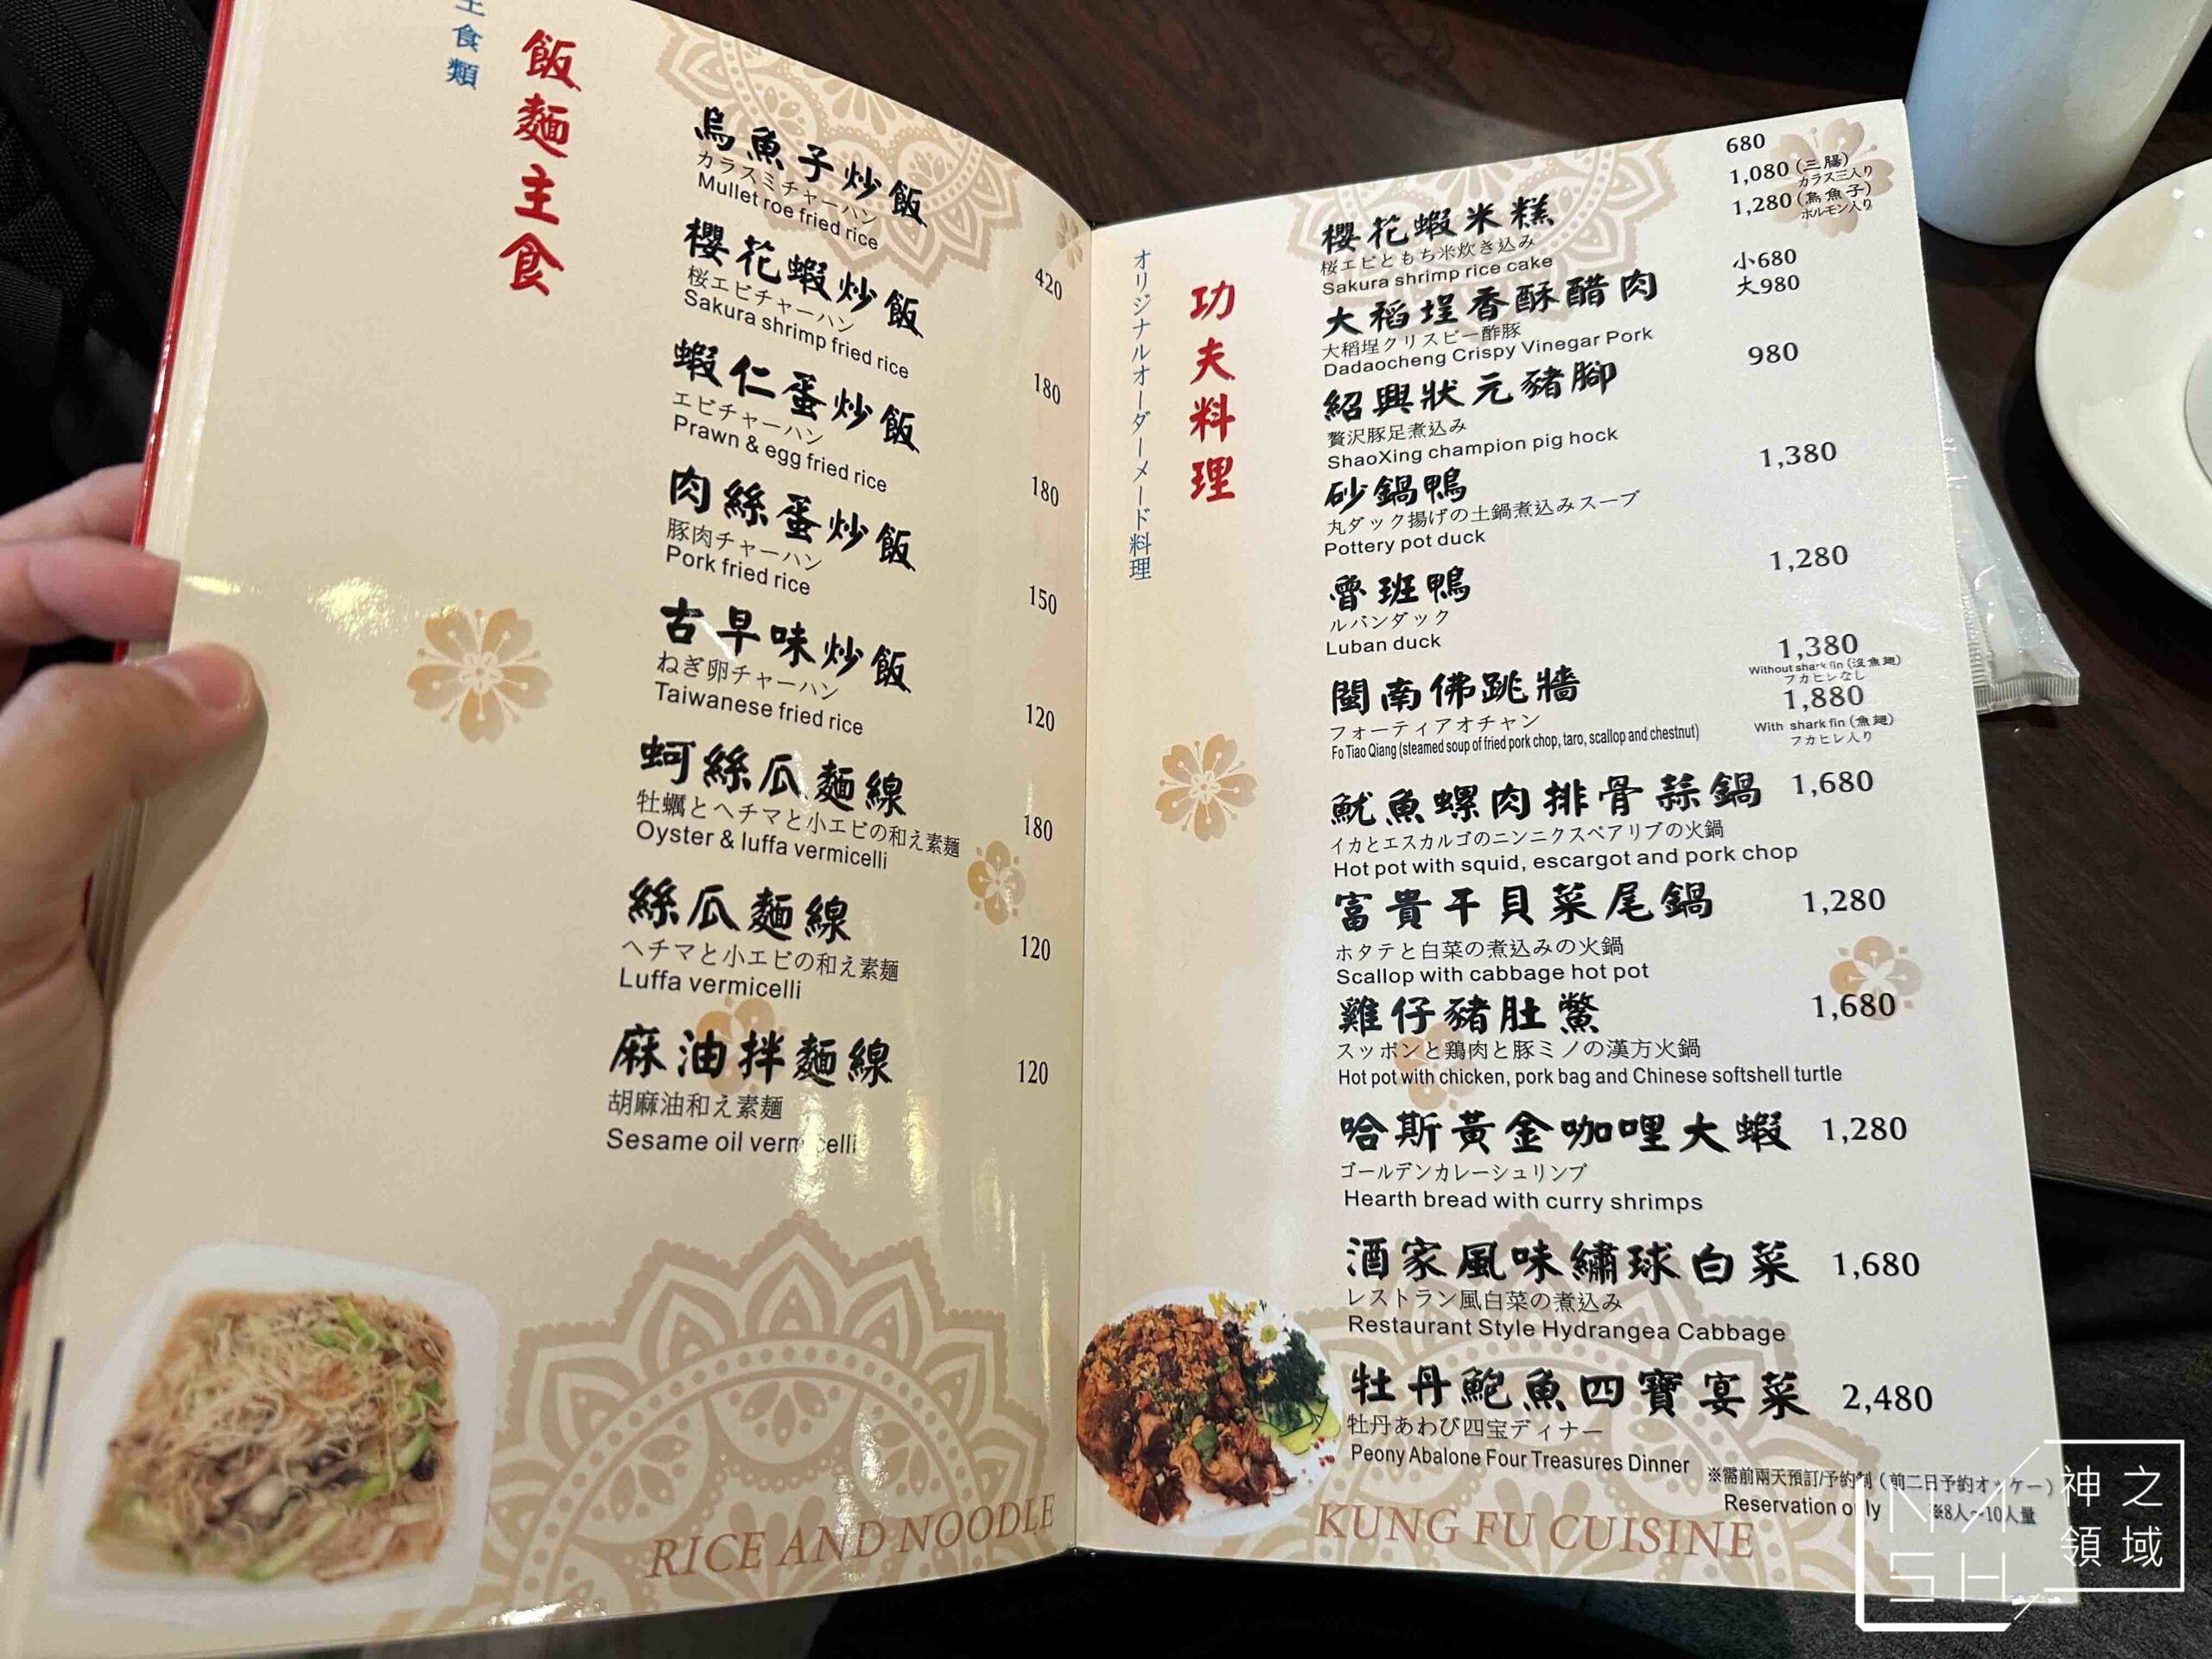 主食類
飯麵主食
烏魚子炒飯
カラスミチャーハン
Mullet roe fried rice
420
櫻花蝦炒飯
桜エビチャーハン
Sakura shrimp fried rice
180
蝦仁蛋炒飯
エビチャーハン
Prawn & egg fried rice
180
肉絲蛋炒飯
豚肉チャーハン
Pork fried rice
150
古早味炒飯
ねぎ卵チャーハン
Taiwanese fried rice
120
蚵絲瓜麵線
牡蠣とヘチマと小エビの和え素麺
Oyster & luffa vermicelli
180
絲瓜麵線
ヘチマと小エビの和え素麺
Luffa vermicelli
120
麻油拌麵線
胡麻油和え素麺
Sesame oil vermicelli
120
RICE AND NOODLE
オリジナルオーダーメード料理
功夫料理
櫻花蝦米糕
桜エビともち米炊き込み
Sakura shrimp rice cake
680
1,080 (三腸)
カラス三入り
1,280 (烏魚子)
ホルモン入り
大稻埕香酥醋肉
大稻埕クリスピー酢豚
Dadaocheng Crispy Vinegar Pork
小680
大980
紹興狀元豬腳
贅沢豚足煮込み
ShaoXing champion pig hock
980
砂鍋鴨
丸ダック揚げの土鍋煮込みスープ
Pottery pot duck
1,380
魯班鴨
ルバンダック
Luban duck
1,280
閩南佛跳牆
フォーティアオチャン
Fo Tiao Qiang (steamed soup of fried pork chop, taro, scallop and chestnut)
1,380
Without shark fin (沒魚翅)
フカヒレなし
1,880
With shark fin (魚翅)
フカヒレ入り
魷魚螺肉排骨蒜鍋 1,680
イカとエスカルゴのニンニクスペアリブの火鍋
Hot pot with squid, escargot and pork chop
富貴干貝菜尾鍋 1,280
ホタテと白菜の煮込みの火鍋
Scallop with cabbage hot pot
雞仔豬肚鱉 1,680
スッポンと鶏肉と豚ミノの漢方火鍋
Hot pot with chicken, pork bag and Chinese softshell turtle
哈斯黃金咖哩大蝦 1,280
ゴールデンカレーシュリンプ
Hearth bread with curry shrimps
酒家風味繡球白菜 1,680
レストラン風白菜の煮込み
Restaurant Style Hydrangea Cabbage
牡丹鮑魚四寶宴菜 2,480
牡丹あわび四宝ディナー
Peony Abalone Four Treasures Dinner
※需前兩天預訂/予約制 (前二日予約オッケー)
Reservation only
※8人~10人量
KUNG FU CUISINE
NASH
神之領域